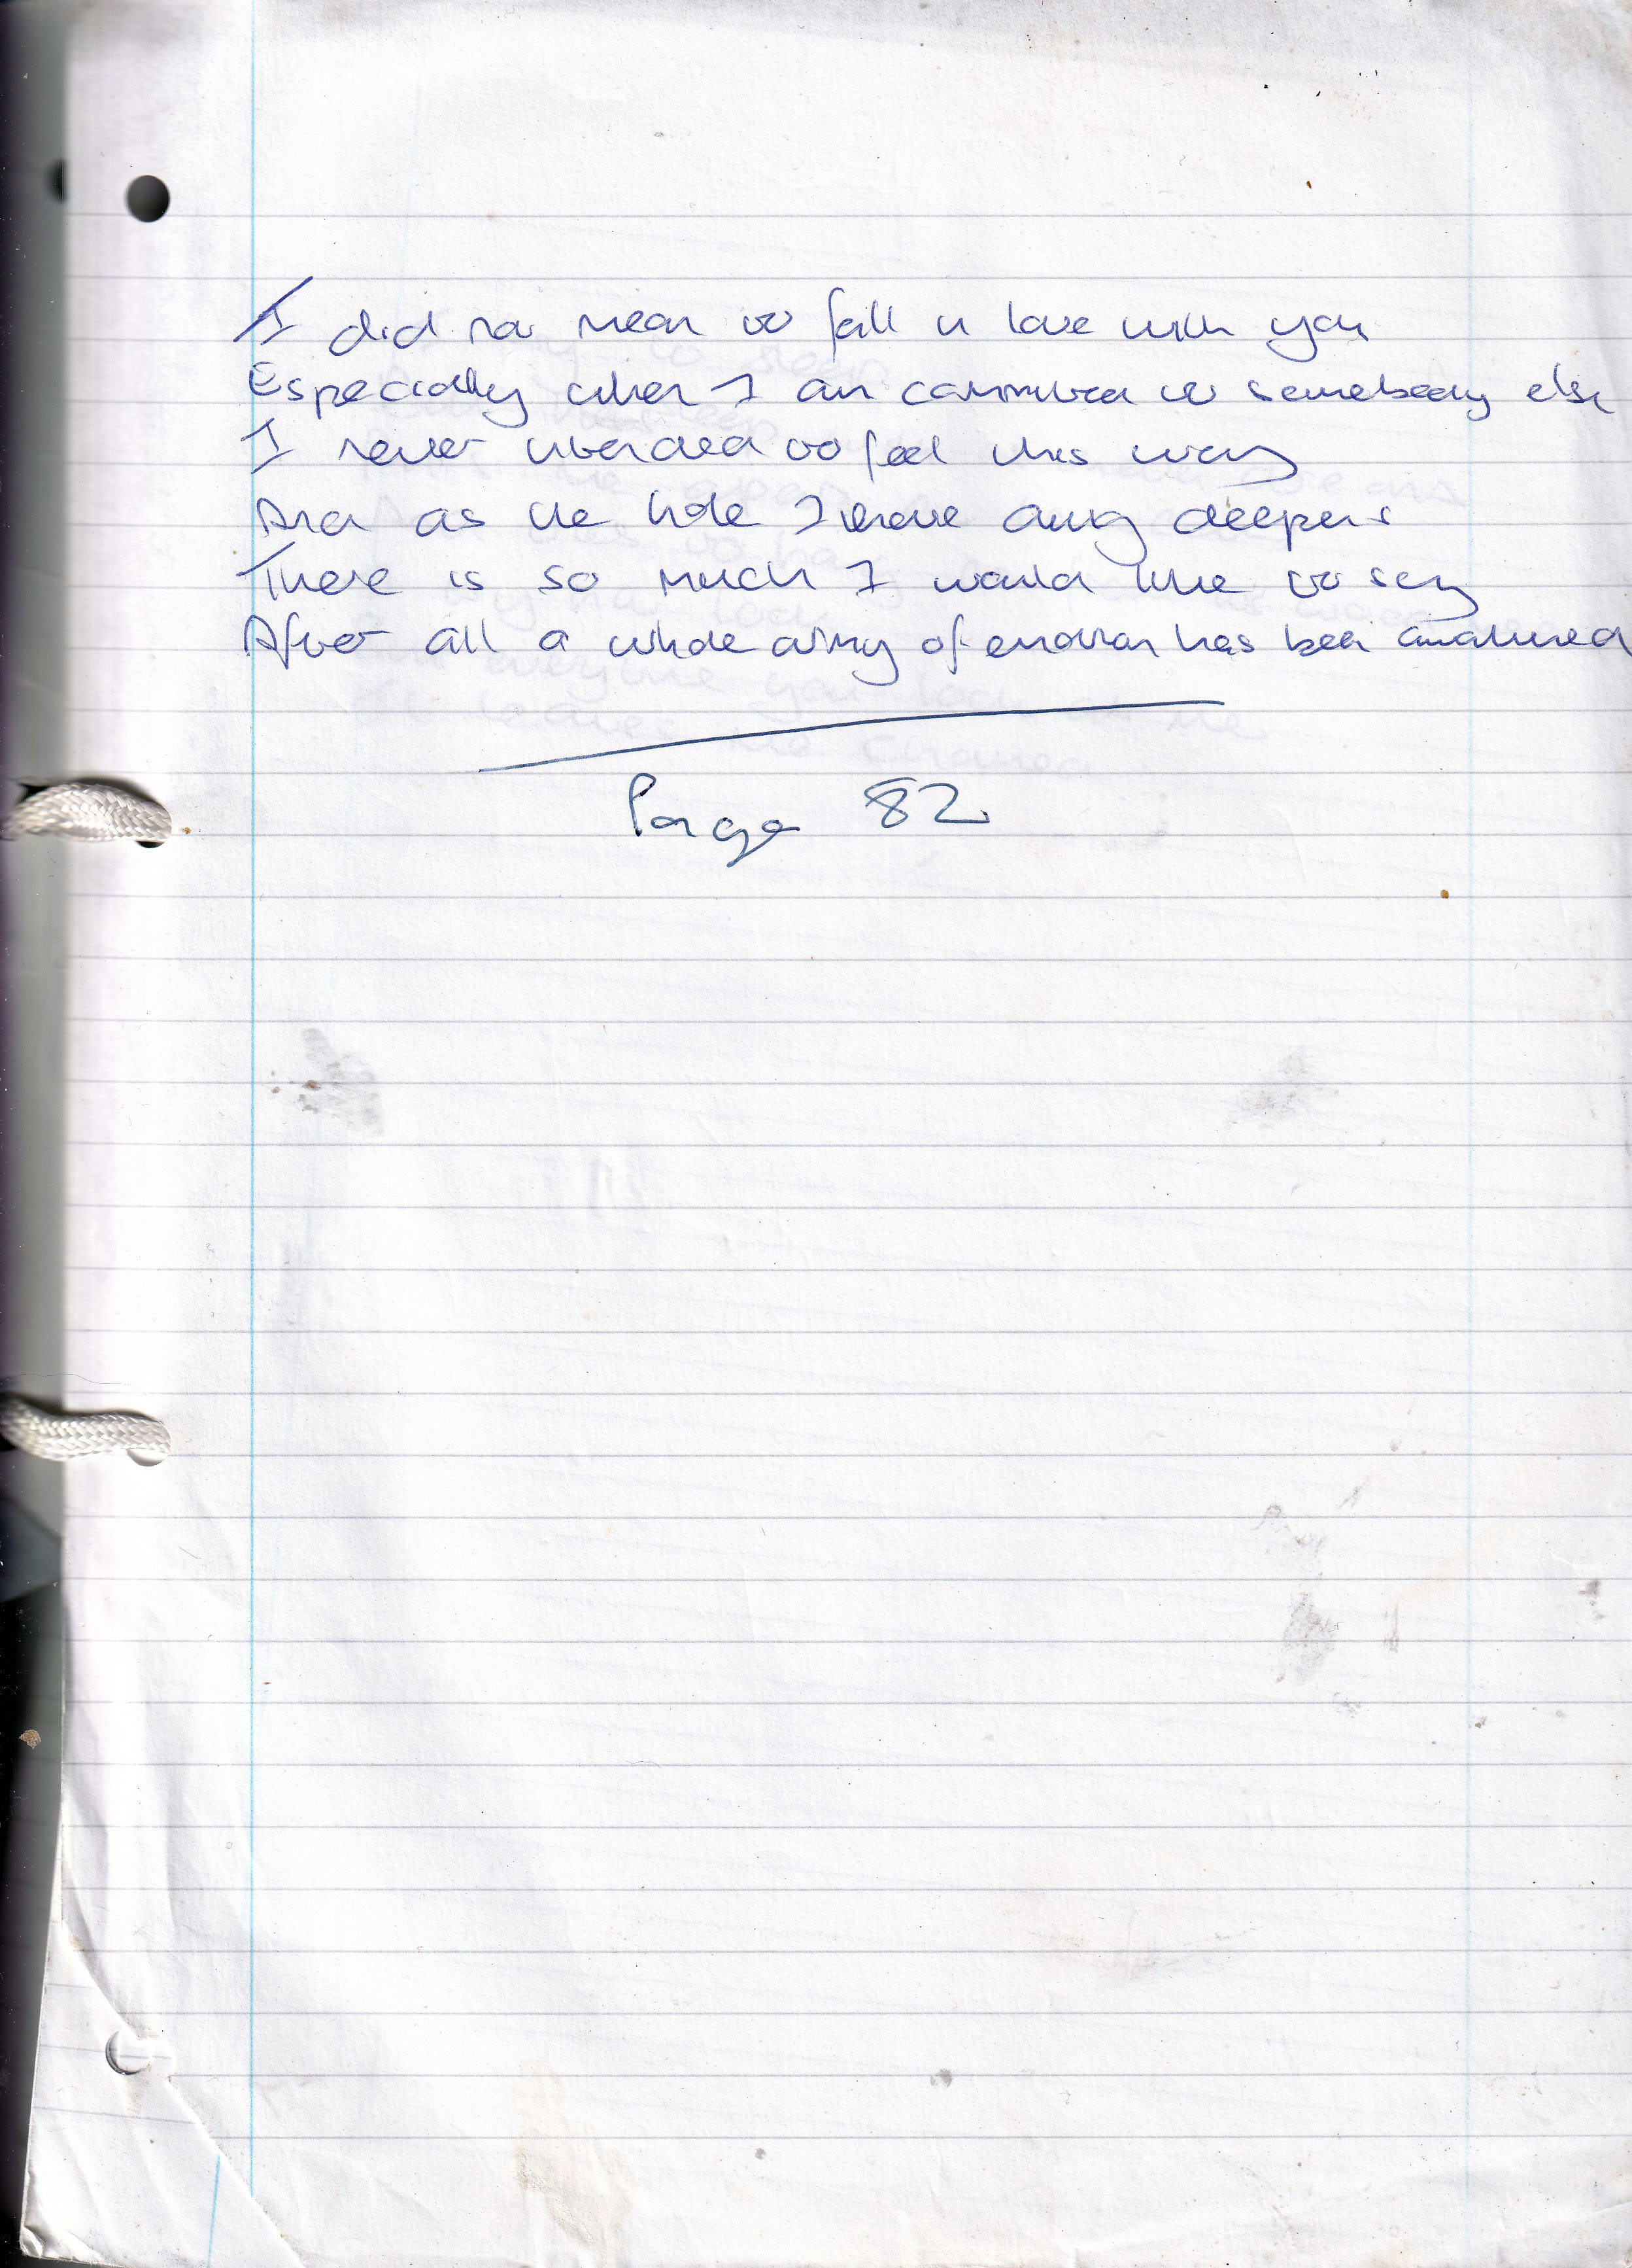 I did not mean to fall in love with you
Especially when I am committed to somebody else
I never intended to feel this way
And as the hole I have dug deepens
There is so much I would like to say
After all a whole army of emotion has been
Page 82